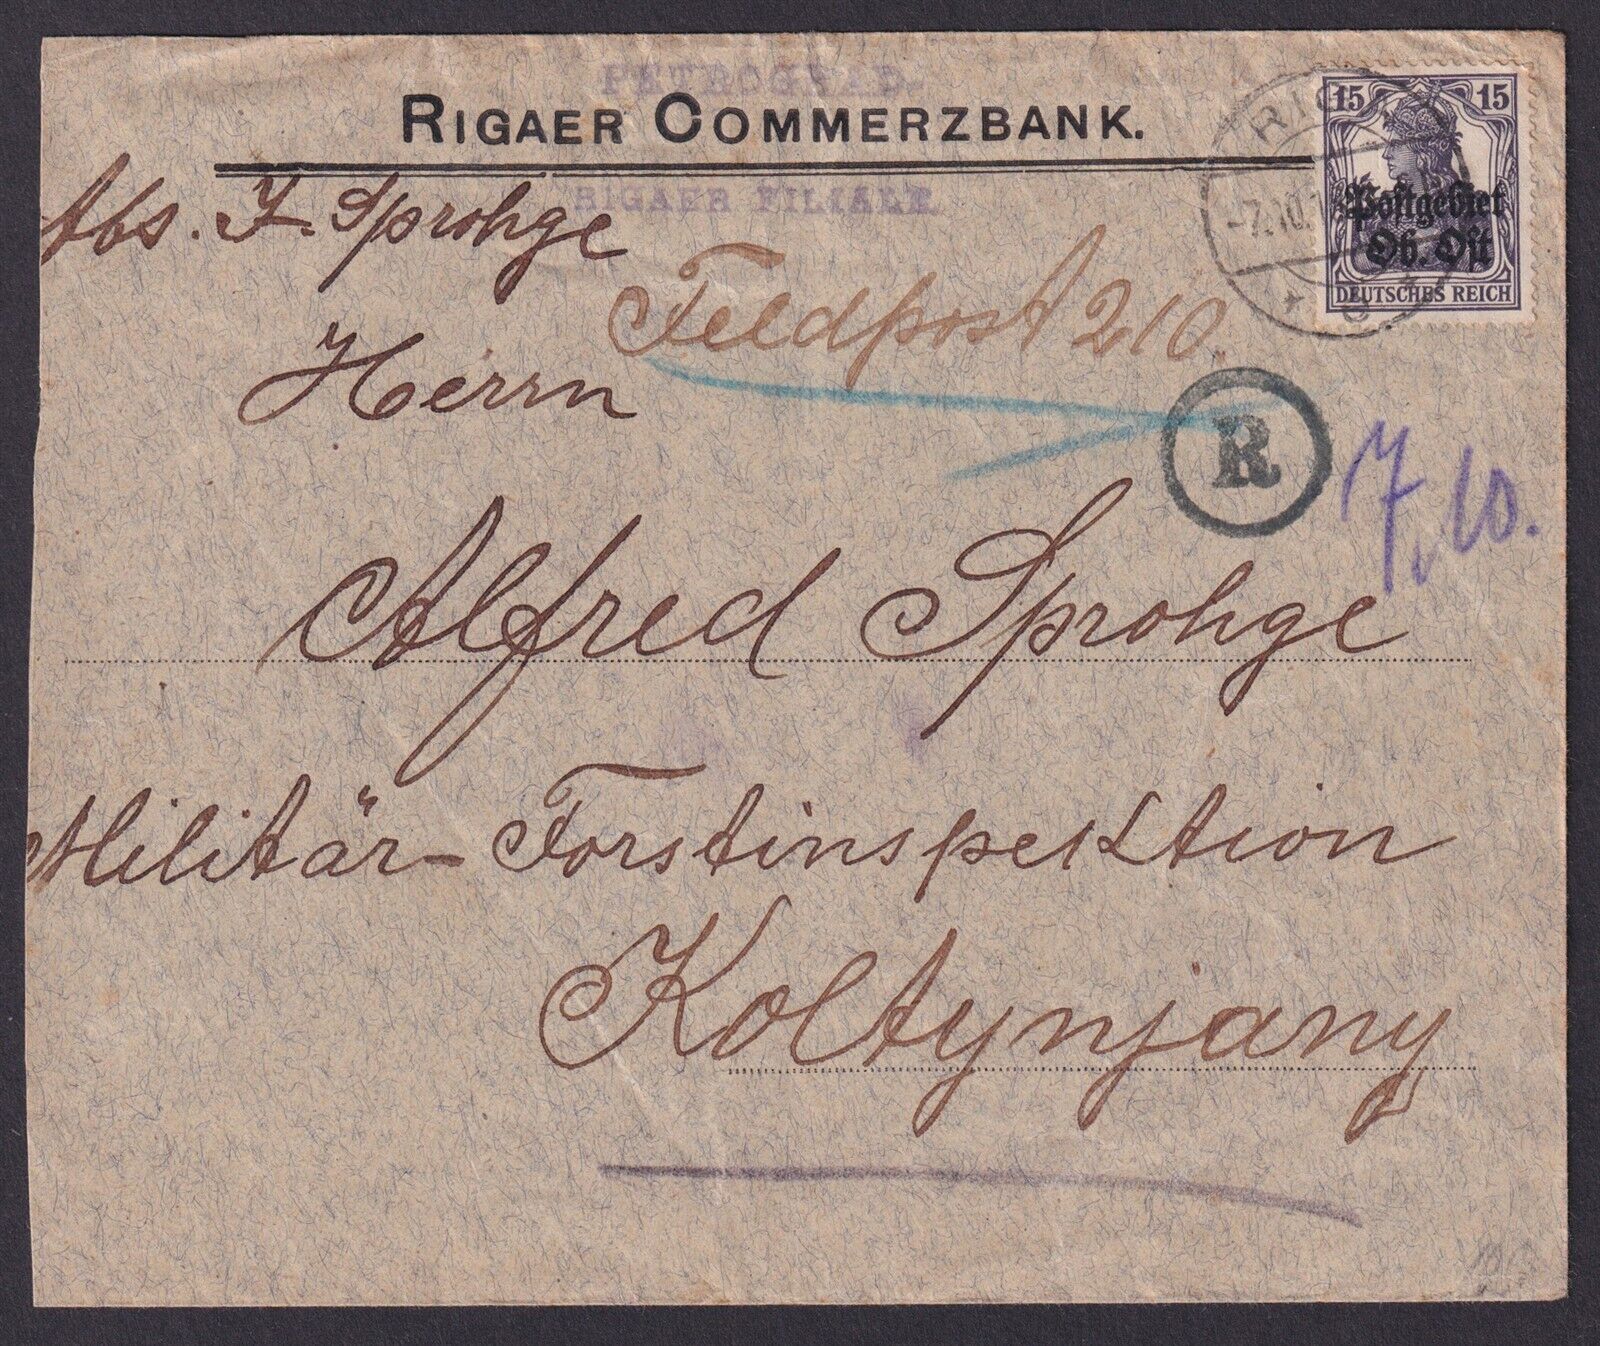 PETROGRAD.
RIGAER COMMERZBANK.
RIGAER FILIALE
Abs. J. Sprohge
15 15
Postgebiet
Ob. Ost
DEUTSCHES REICH
RIGA
-7.10.
Feldpost 210.
Herrn
R
7.10.
Alfred Sprohge
Militär-Forstinspektion
Koltynjany